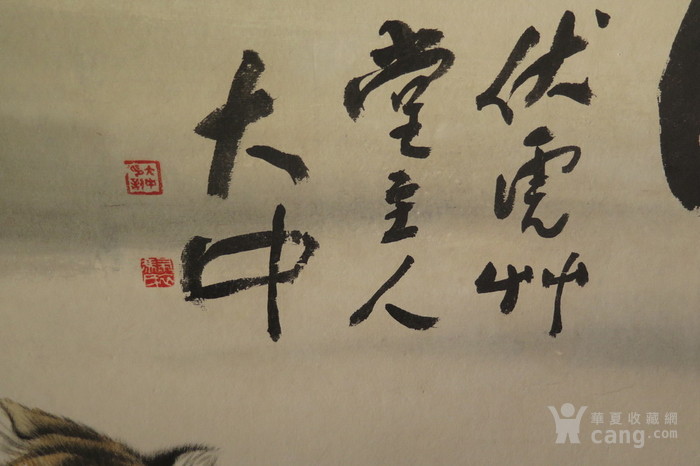 伏虎艸
堂主人
大中
華夏收藏網
cang.com